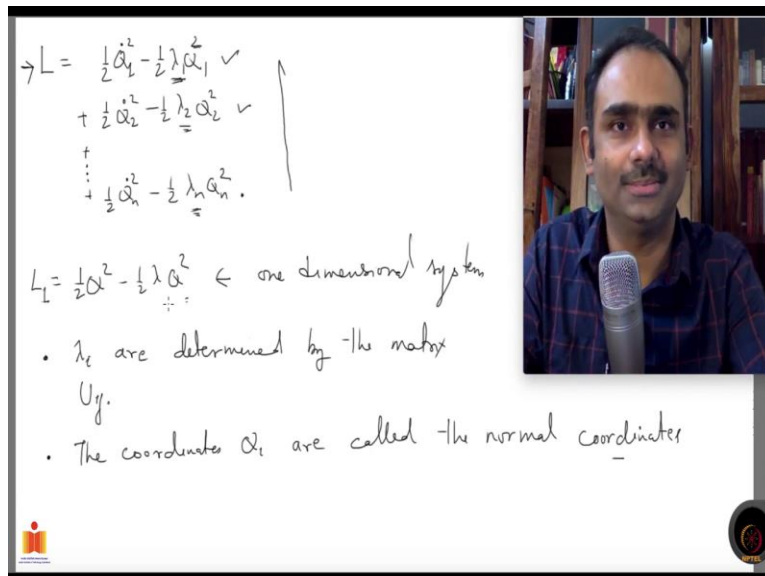 → L = ½ Q̇₁² - ½ λ₁Q₁² ✓
+ ½ Q̇₂² - ½ λ₂ Q₂² ✓
+
⋮
+ ½ Q̇ₙ² - ½ λₙ Qₙ² .
L₁ = ½ Q² - ½ λ Q² ← one dimensional system
• λᵢ are determined by the matrix
Uᵢⱼ.
• The coordinates Qᵢ are called the normal coordinates
NPTEL